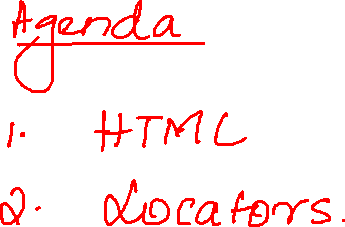 Agenda
1. HTML
2. Locators.